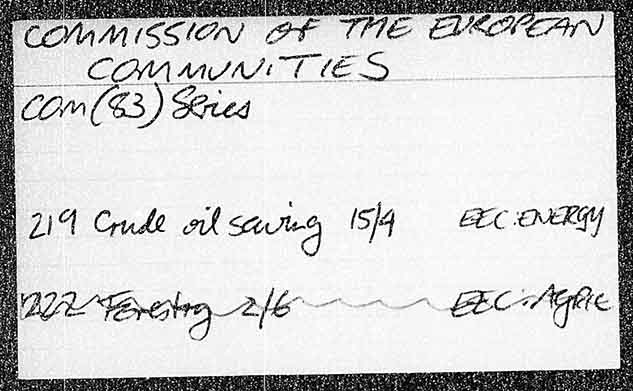 COMMISSION OF THE EUROPEAN
COMMUNITIES
COM(83) Series
219 Crude oil saving 15/4 EEC:ENERGY
222 Forestry 2/6 EEC:AGRIC